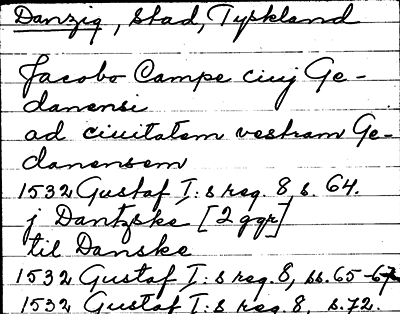 Danzig, stad, Tyskland
Jacobo Campe ciuj Ge-
danensi
ad ciuitatem vestram Ge-
danensem
1532 Gustaf I:s reg. 8, s. 64.
j Dantzske [2 ggr]
til Danske
1532 Gustaf I:s reg. 8, ss. 65-67
1532 Gustaf I:s reg. 8, s. 72.